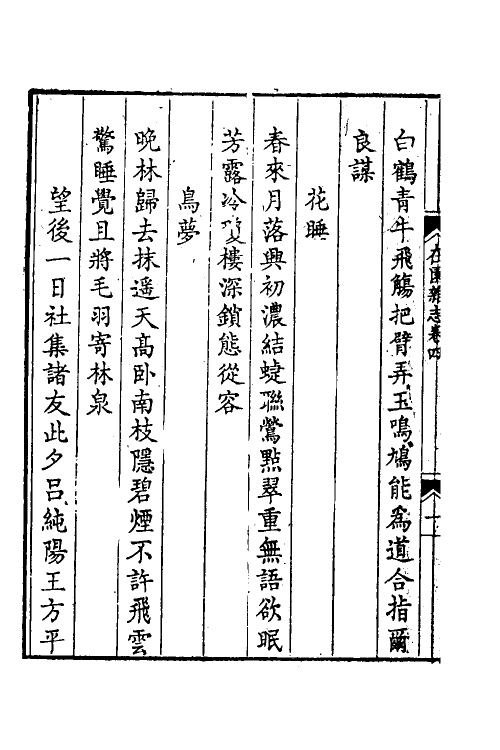 在園雜志卷四
白鶴青牛飛觴把臂弄玉鳴鳩能爲道合指爾
良謀
花睡
春來月落興初濃結蜨聯鶯點翠重無語欲眠
芳露冷樓深鎖態從容
鳥夢
晚林歸去抹遥天高卧南枝隱碧煙不許飛雲
驚睡覺且將毛羽寄林泉
望後一日社集諸友此夕吕純陽王方平